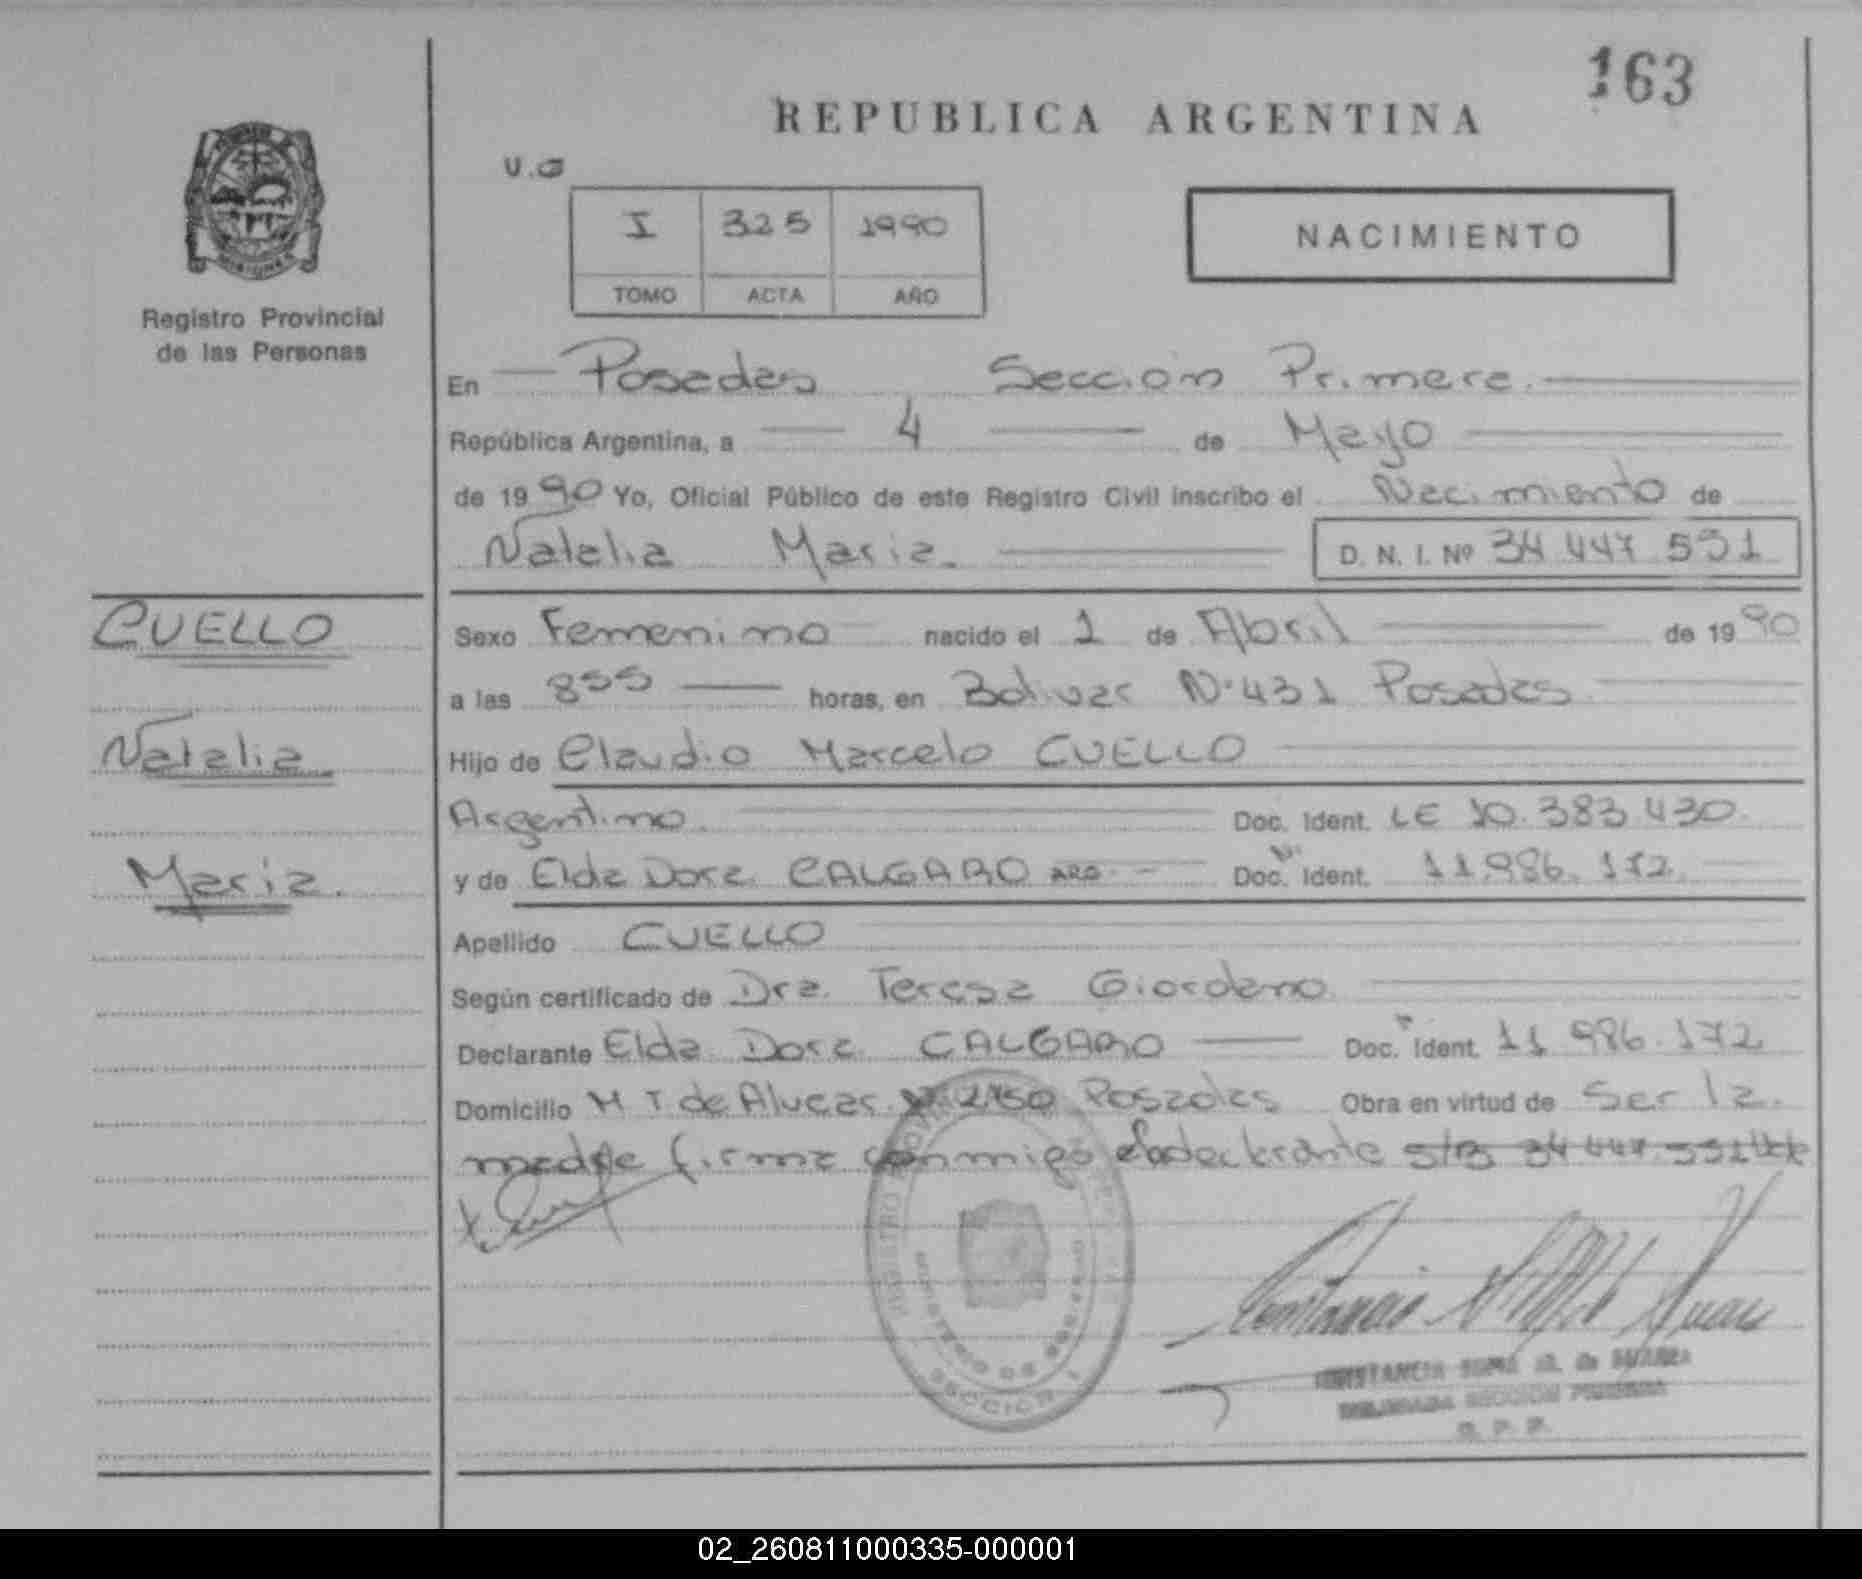 163
REPUBLICA ARGENTINA
U.G
I 325 1990
TOMO ACTA AÑO
NACIMIENTO
MISIONES
Registro Provincial
de las Personas
En Posadas Sección Primera.
República Argentina, a 4 de Mayo
de 1990 Yo, Oficial Público de este Registro Civil inscribo el Nacimiento de
Natalia Maria. D. N. I. Nº 34 447 551
CUELLO
Natalia
Maria.
Sexo Femenino nacido el 1 de Abril de 1990
a las 855 horas, en Bolivar Nº 431 Posadas
Hijo de Claudio Marcelo CUELLO
Argentino. Doc. Ident. LE 10.383.430.
y de Elda Dora CALGARO ARG. Doc. Ident. 11.986.172.
Apellido CUELLO
Según certificado de Dra. Teresa Giordano
Declarante Elda Dora CALGARO Doc. Ident. 11 986.172
Domicilio M T. de Alvear Nº 2150 Posadas Obra en virtud de ser la
madre firma conmigo la declarante
SECCION 1
CONSTANCIA
DELEGADA SECCION PRIMERA
R. P. P.
02_260811000335-000001